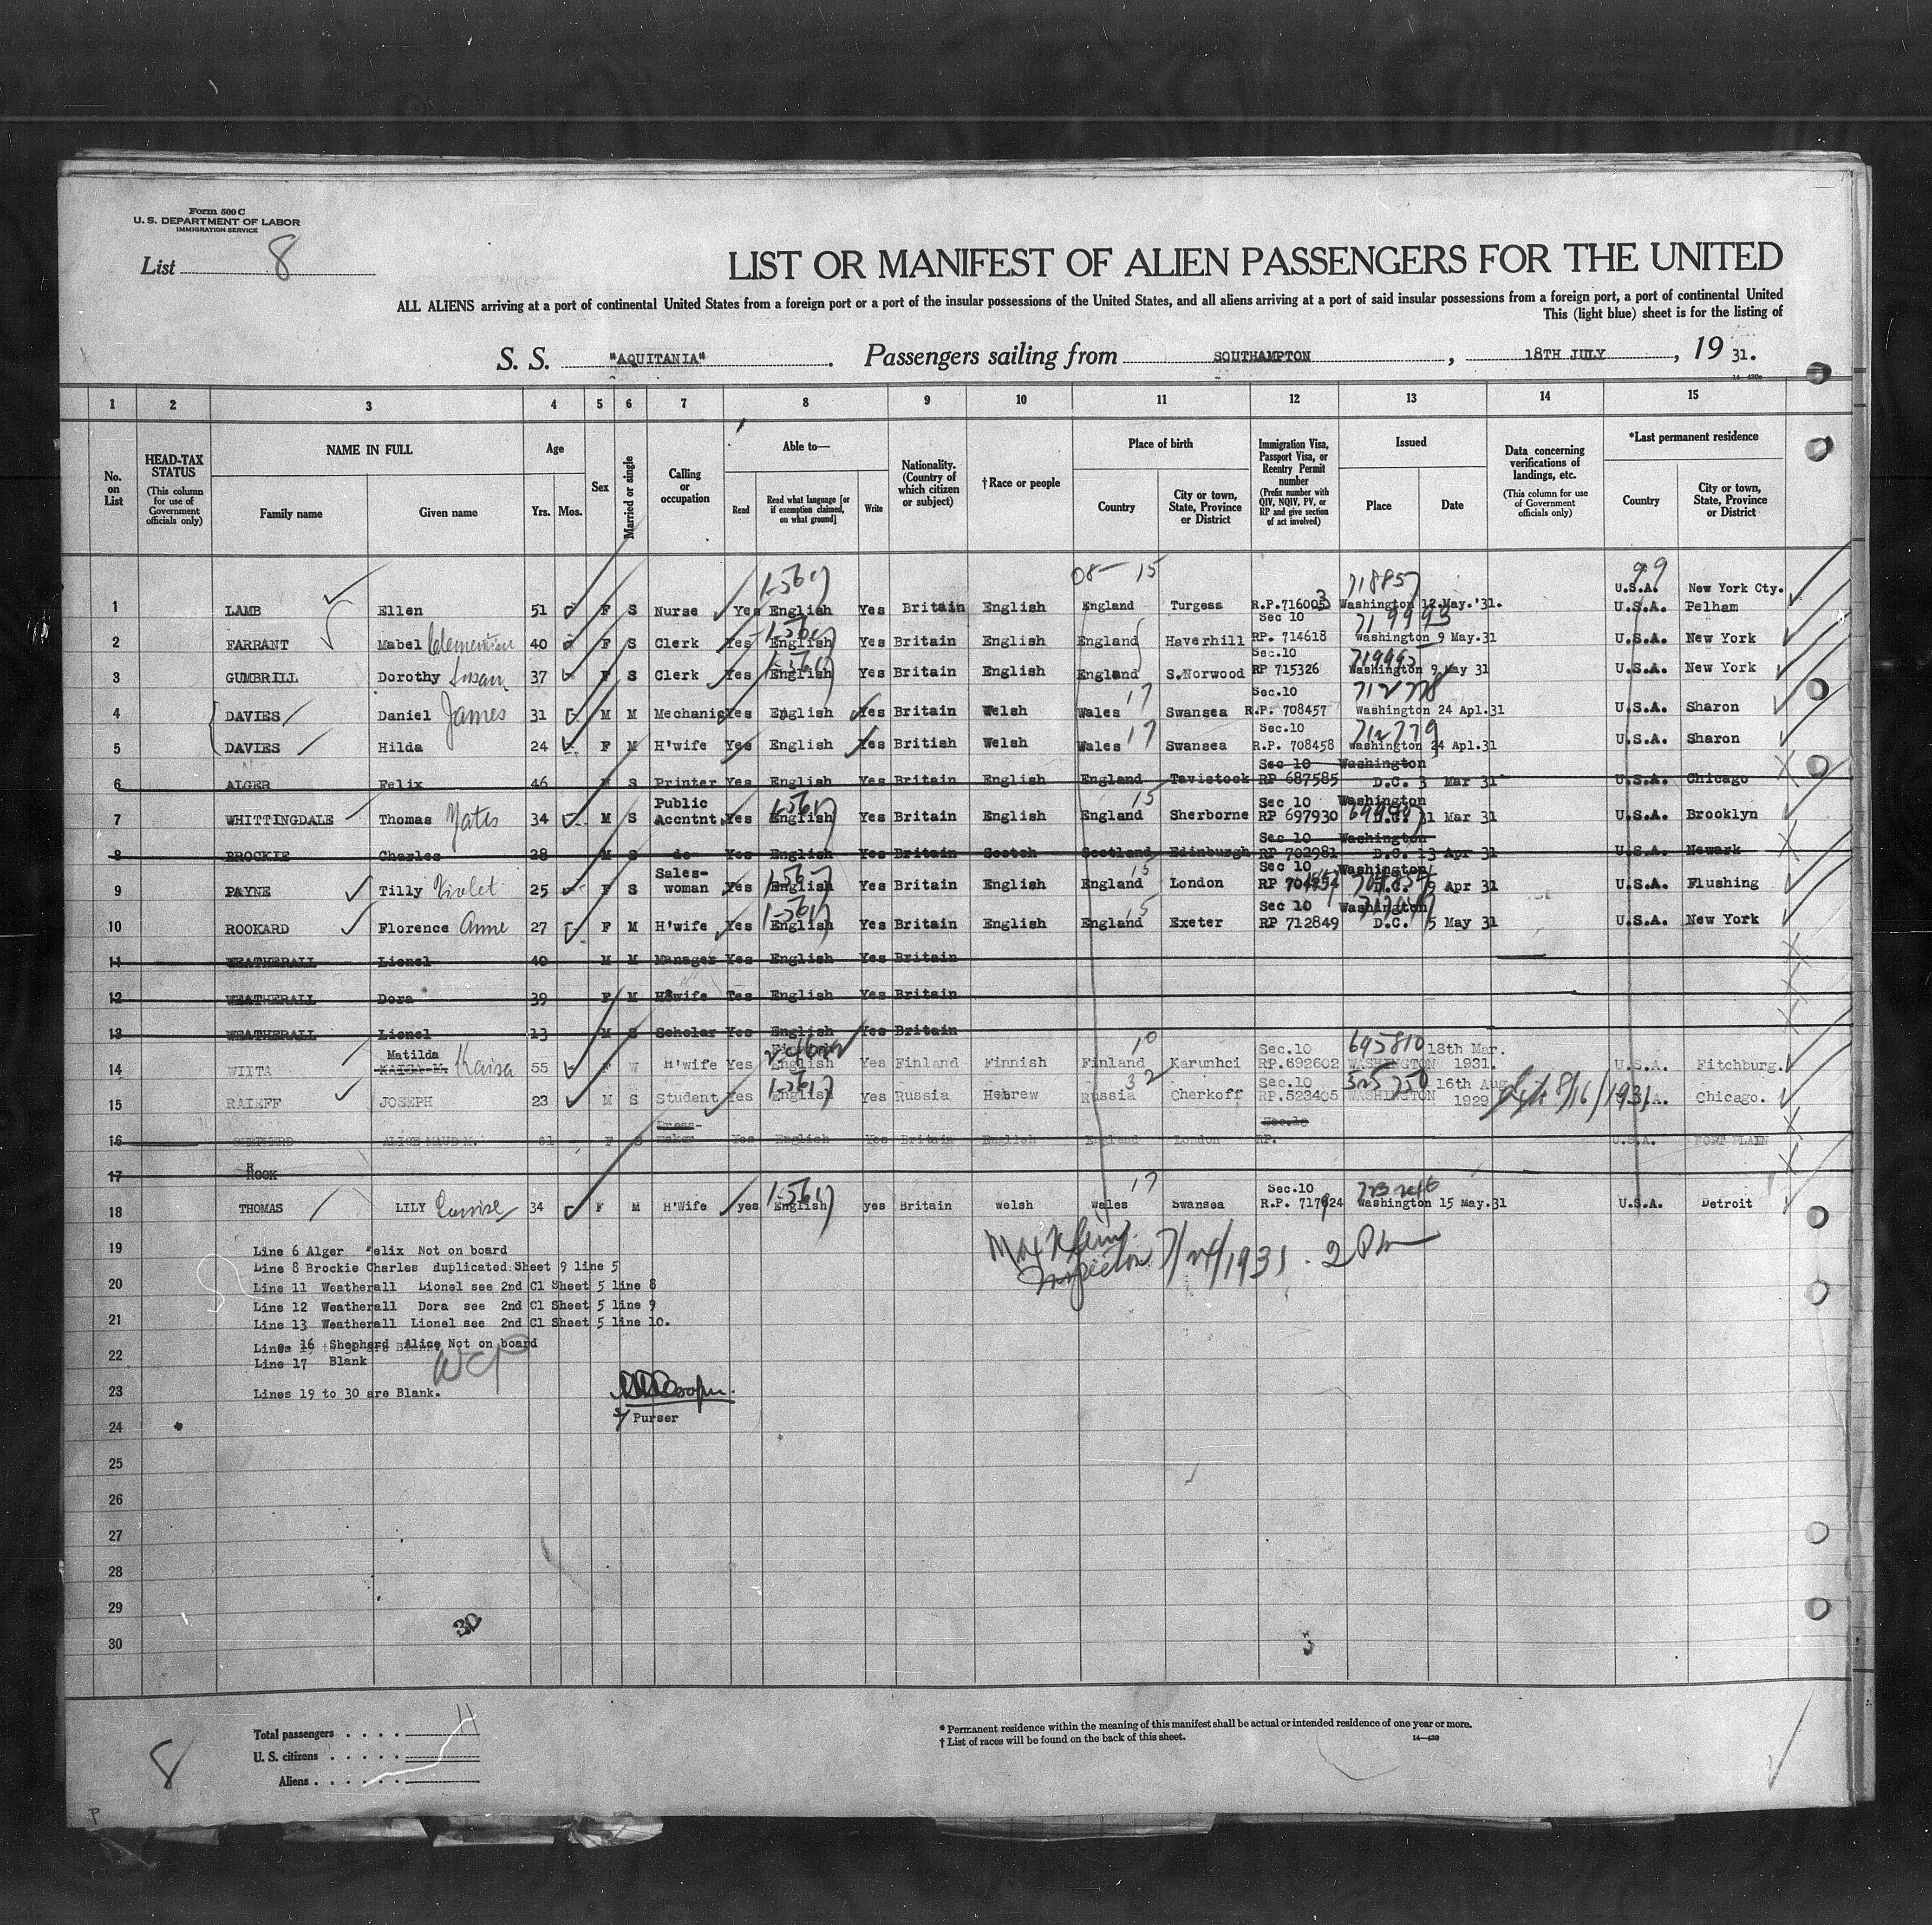 Form 500 C
U. S. DEPARTMENT OF LABOR
IMMIGRATION SERVICE
List 8
LIST OR MANIFEST OF ALIEN PASSENGERS FOR THE UNITED
ALL ALIENS arriving at a port of continental United States from a foreign port or a port of the insular possessions of the United States, and all aliens arriving at a port of said insular possessions from a foreign port, a port of continental United
This (light blue) sheet is for the listing of
S. S. "AQUITANIA". Passengers sailing from SOUTHAMPTON, 18TH JULY, 19 31.
1 2 3 4 5 6 7 8 9 10 11 12 13 14 15
No. on List
HEAD-TAX STATUS (This column for use of Government officials only)
NAME IN FULL Family name Given name
Age Yrs. Mos.
Sex
Married or single
Calling or occupation
Able to— Read Read what language [or if exemption claimed, on what ground] Write
Nationality. (Country of which citizen or subject)
†Race or people
Place of birth Country City or town, State, Province or District
Immigration Visa, Passport Visa, or Reentry Permit number (Prefix number with QIV, NQIV, PV, or RP and give section of act involved)
Issued Place Date
Data concerning verifications of landings, etc. (This column for use of Government officials only)
*Last permanent residence Country City or town, State, Province or District
08- 15 718857 99 U.S.A. New York Cty.
1 LAMB Ellen 51 F S Nurse Yes English Yes Britain English England Turgess R.P.716005 3 Washington 12 May.'31. U.S.A. Pelham
Sec 10 719993
2 FARRANT Mabel Clementine 40 F S Clerk Yes English Yes Britain English England Haverhill RP. 714618 Washington 9 May.31 U.S.A. New York
Sec.10 719995
3 GUMBRILL Dorothy Susan 37 F S Clerk Yes English Yes Britain English England S.Norwood RP 715326 Washington 9 May 31 U.S.A. New York
Sec.10 712778
4 DAVIES Daniel James 31 M M Mechanic Yes English Yes Britain Welsh Wales 17 Swansea R.P. 708457 Washington 24 Apl.31 U.S.A. Sharon
Sec.10 712779
5 DAVIES Hilda 24 F M H'wife Yes English Yes British Welsh Wales 17 Swansea R.P. 708458 Washington 24 Apl.31 U.S.A. Sharon
Sec 10 Washington
6 ALGER Felix 46 S Printer Yes English Yes Britain English England Tavistock RP 687585 D.C. 3 Mar 31 U.S.A. Chicago
Public 15 Sec 10 Washington
7 WHITTINGDALE Thomas Yates 34 M S Accntnt Yes English Yes Britain English England Sherborne RP 697930 Mar 31 U.S.A. Brooklyn
Sec 10 Washington
8 BROCKIE Charles 28 M S do Yes English Yes Britain Scotch Scotland Edinburgh RP 702981 D.C. 13 Apr 31 U.S.A. Newark
Sales- 15 Sec 10 Washington
9 PAYNE Tilly Violet 25 F S woman Yes English Yes Britain English England London RP 9 Apr 31 U.S.A. Flushing
15 Sec 10 Washington
10 ROOKARD Florence Anne 27 F M H'wife Yes English Yes Britain English England Exeter RP 712849 D.C. 5 May 31 U.S.A. New York
11 WEATHERALL Lionel 40 M M Manager Yes English Yes Britain
12 WEATHERALL Dora 39 F M H'wife Yes English Yes Britain
13 WEATHERALL Lionel 13 M S Scholar Yes English Yes Britain
Matilda 10 Sec.10 695810 18th Mar.
14 WIITA KAISA M. Kaisa 55 F W H'wife Yes English Yes Finland Finnish Finland Karunhci RP.692602 WASHINGTON 1931. U.S.A. Fitchburg.
32 Sec.10 525750 16th Aug
15 RAIEFF JOSEPH 23 M S Student Yes English Yes Russia Hebrew Russia Cherkoff RP.523405 WASHINGTON 1929 8/16/1931 Chicago.
Dress- Sec.10
16 SHEPHERD ALICE MAUD M. 61 F S maker Yes English Yes Britain English England London RP. U.S.A. FORT PLAIN
17 ROOK
17 Sec.10
18 THOMAS LILY Louise 34 F M H'Wife yes English yes Britain welsh Wales Swansea R.P. 717924 Washington 15 May.31 U.S.A. Detroit
19 Line 6 Alger Felix Not on board
Line 8 Brockie Charles duplicated Sheet 9 line 5
Max Klein Inspector 7/24/1931. 2 PM
20 Line 11 Weatherall Lionel see 2nd Cl Sheet 5 line 8
Line 12 Weatherall Dora see 2nd Cl Sheet 5 line 9
21 Line 13 Weatherall Lionel see 2nd Cl Sheet 5 line 10.
22 Line 16 Shepherd Alice Not on board
Line 17 Blank
23 Lines 19 to 30 are Blank.
Purser
24
25
26
27
28
29
30
30
3
Total passengers 11
U. S. citizens
Aliens
8
* Permanent residence within the meaning of this manifest shall be actual or intended residence of one year or more.
† List of races will be found on the back of this sheet.
14—430
P